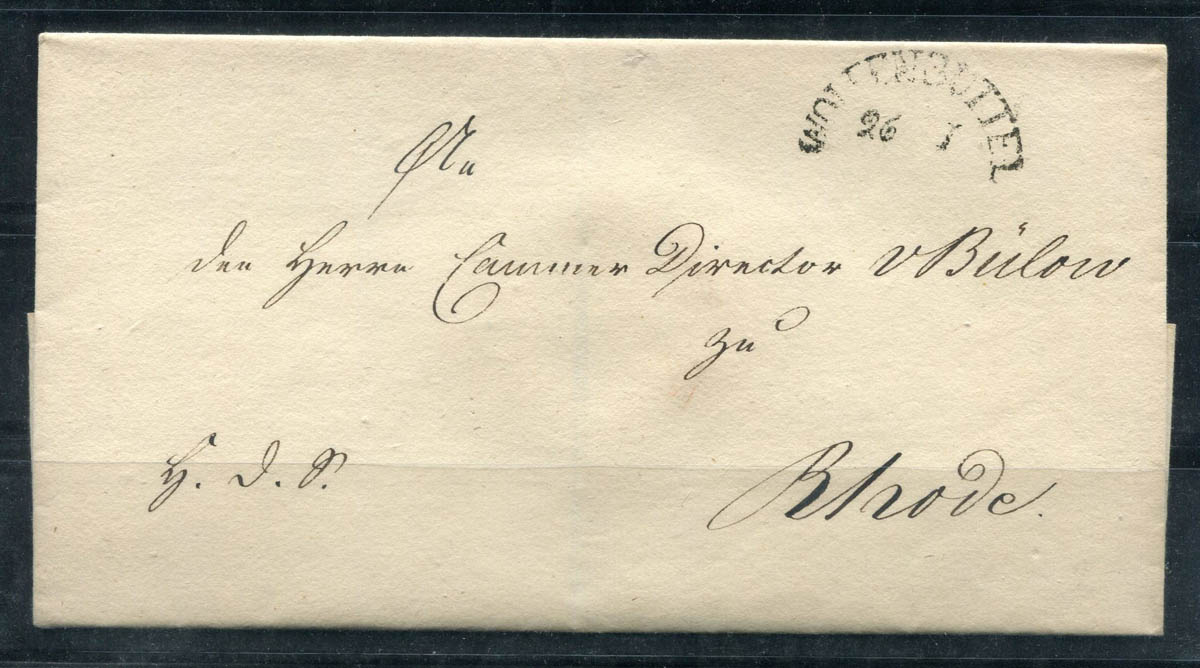 WOLFENBÜTTEL
26 1
An
den Herrn Cammer Director v Bülow
zu
Rhode.
H. D. S.